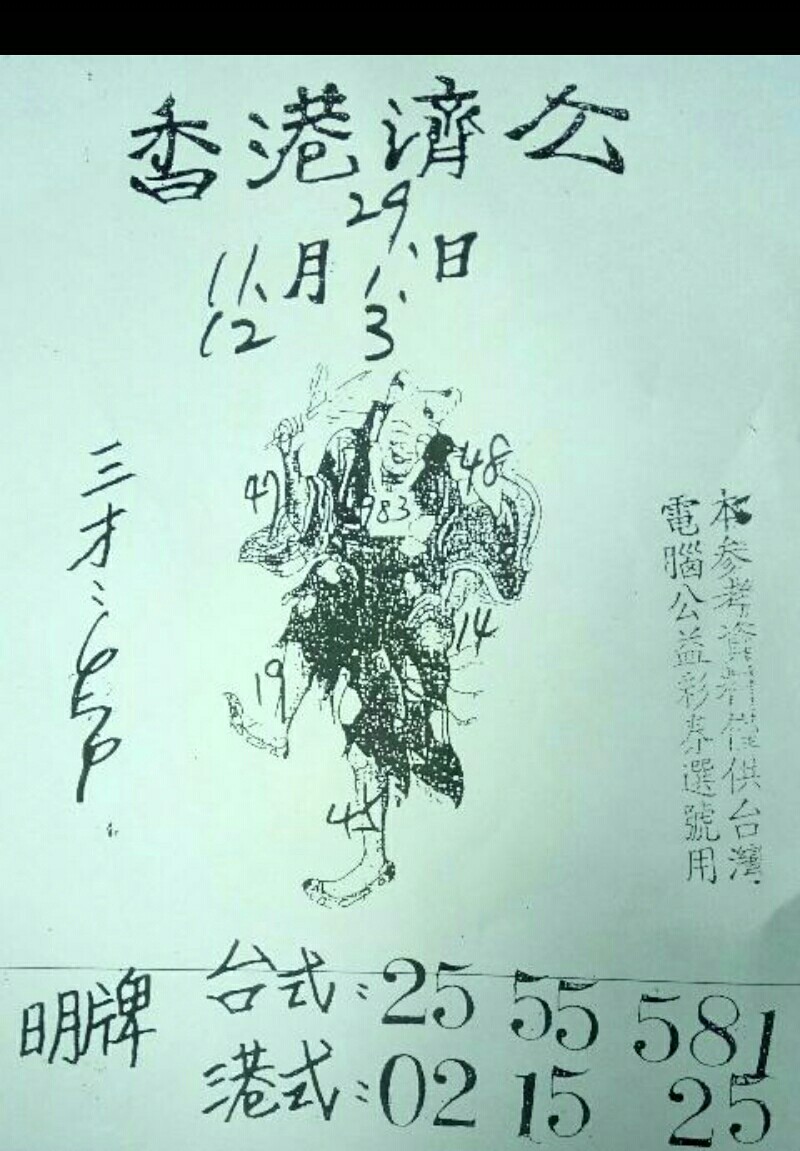 香港濟公
29、
11、月1、日
12 3
三才:
47
48
983
14
19
45
本參考資料僅供台灣
電腦公益彩券選號用
明牌
台式:25 55 581
港式:02 15 25